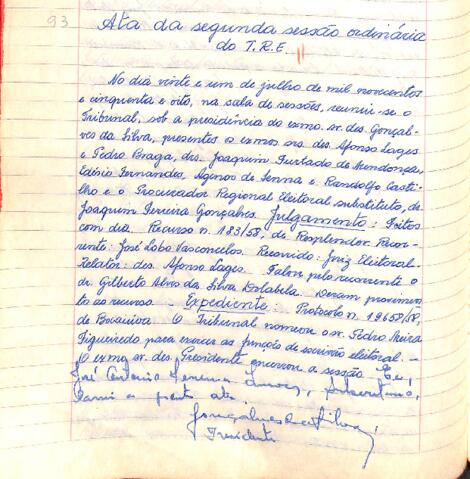 93
Ata da segunda sessão ordinária
do T.R.E.
No dia vinte e um de julho de mil novecentos
e cinquenta e oito, na sala de sessões, reuniu-se o
Tribunal, sob a presidência do exmo. sr. des. Gonçal-
ves da Silva, presentes os exmos. srs. des. Afonso Lages
e Pedro Braga, drs. Joaquim Furtado de Mendonça,
Edésio Fernandes, Agenor de Senna e Randolfo Casti-
lho e o Procurador Regional Eleitoral substituto, dr.
Joaquim Ferreira Gonçalves. Julgamento: Feitos
com dia. Recurso n. 183/58, de Resplendor. Recor-
rente: José Lobo Vasconcelos. Recorrido: Juiz Eleitoral.
Relator: des. Afonso Lages. Falou pelo recorrente o
dr. Gilberto Alves da Silva Dolabela. Deram provimen-
to ao recurso. - Expediente: Protocolo n. 19658/58,
de Bocaiuva. O Tribunal nomeou o sr. Pedro Meira
Figueiredo para exercer as funções de escrivão eleitoral. -
O exmo. sr. des. Presidente encerrou a sessão. Eu,
José Antonio
a ata.
Gonçalves da Silva,
Presidente